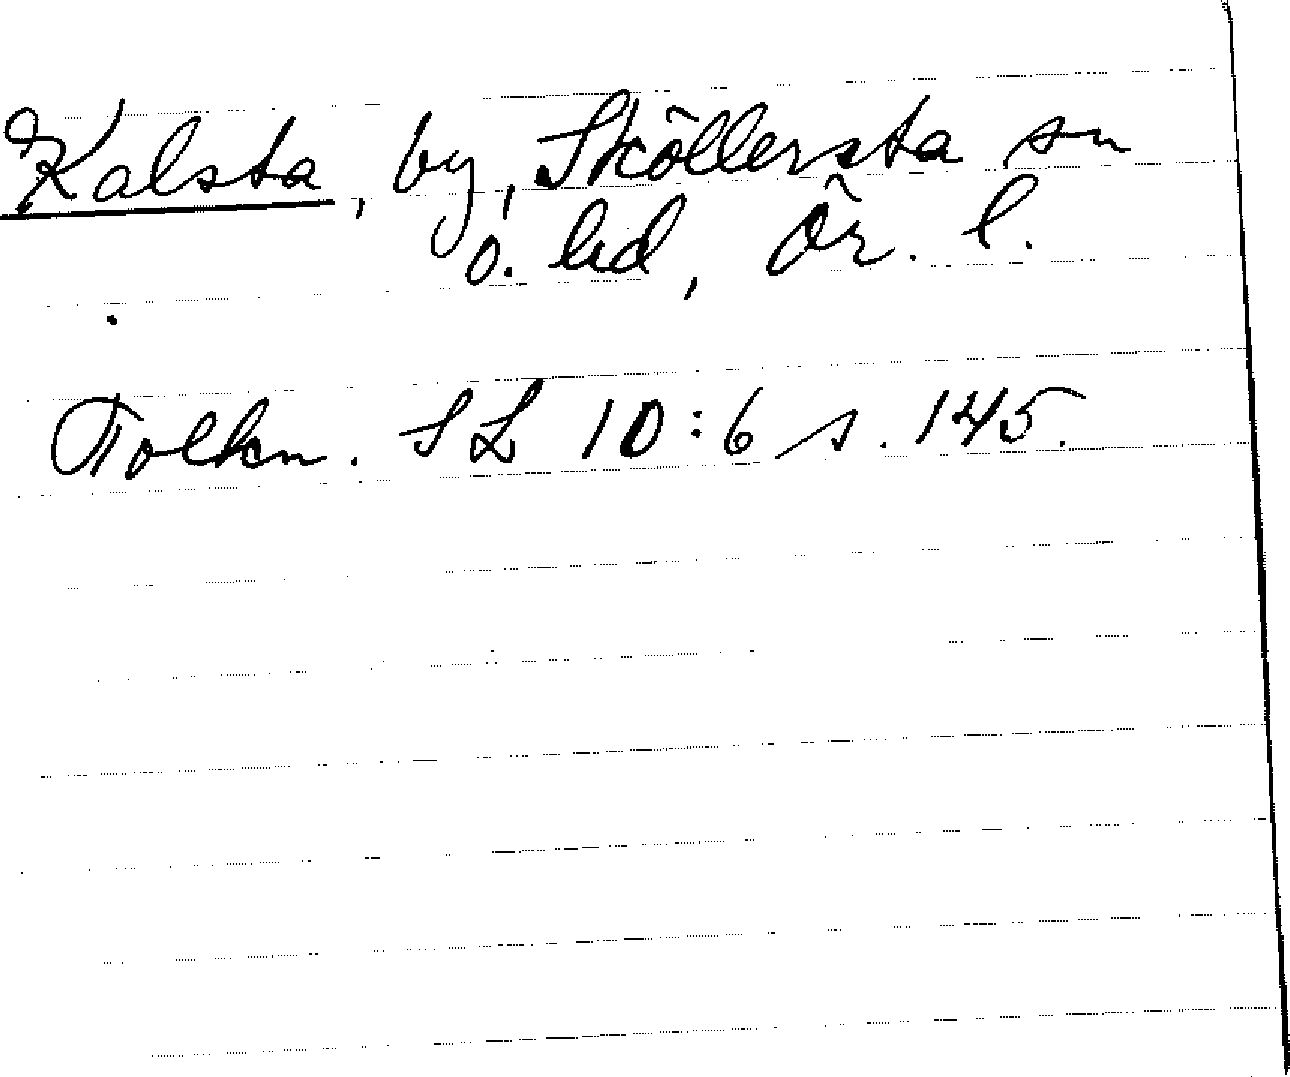 Kalsta, by, Sköllersta sn
o. hd, Ör. l.
Tolkn. SL 10:6 s. 145.